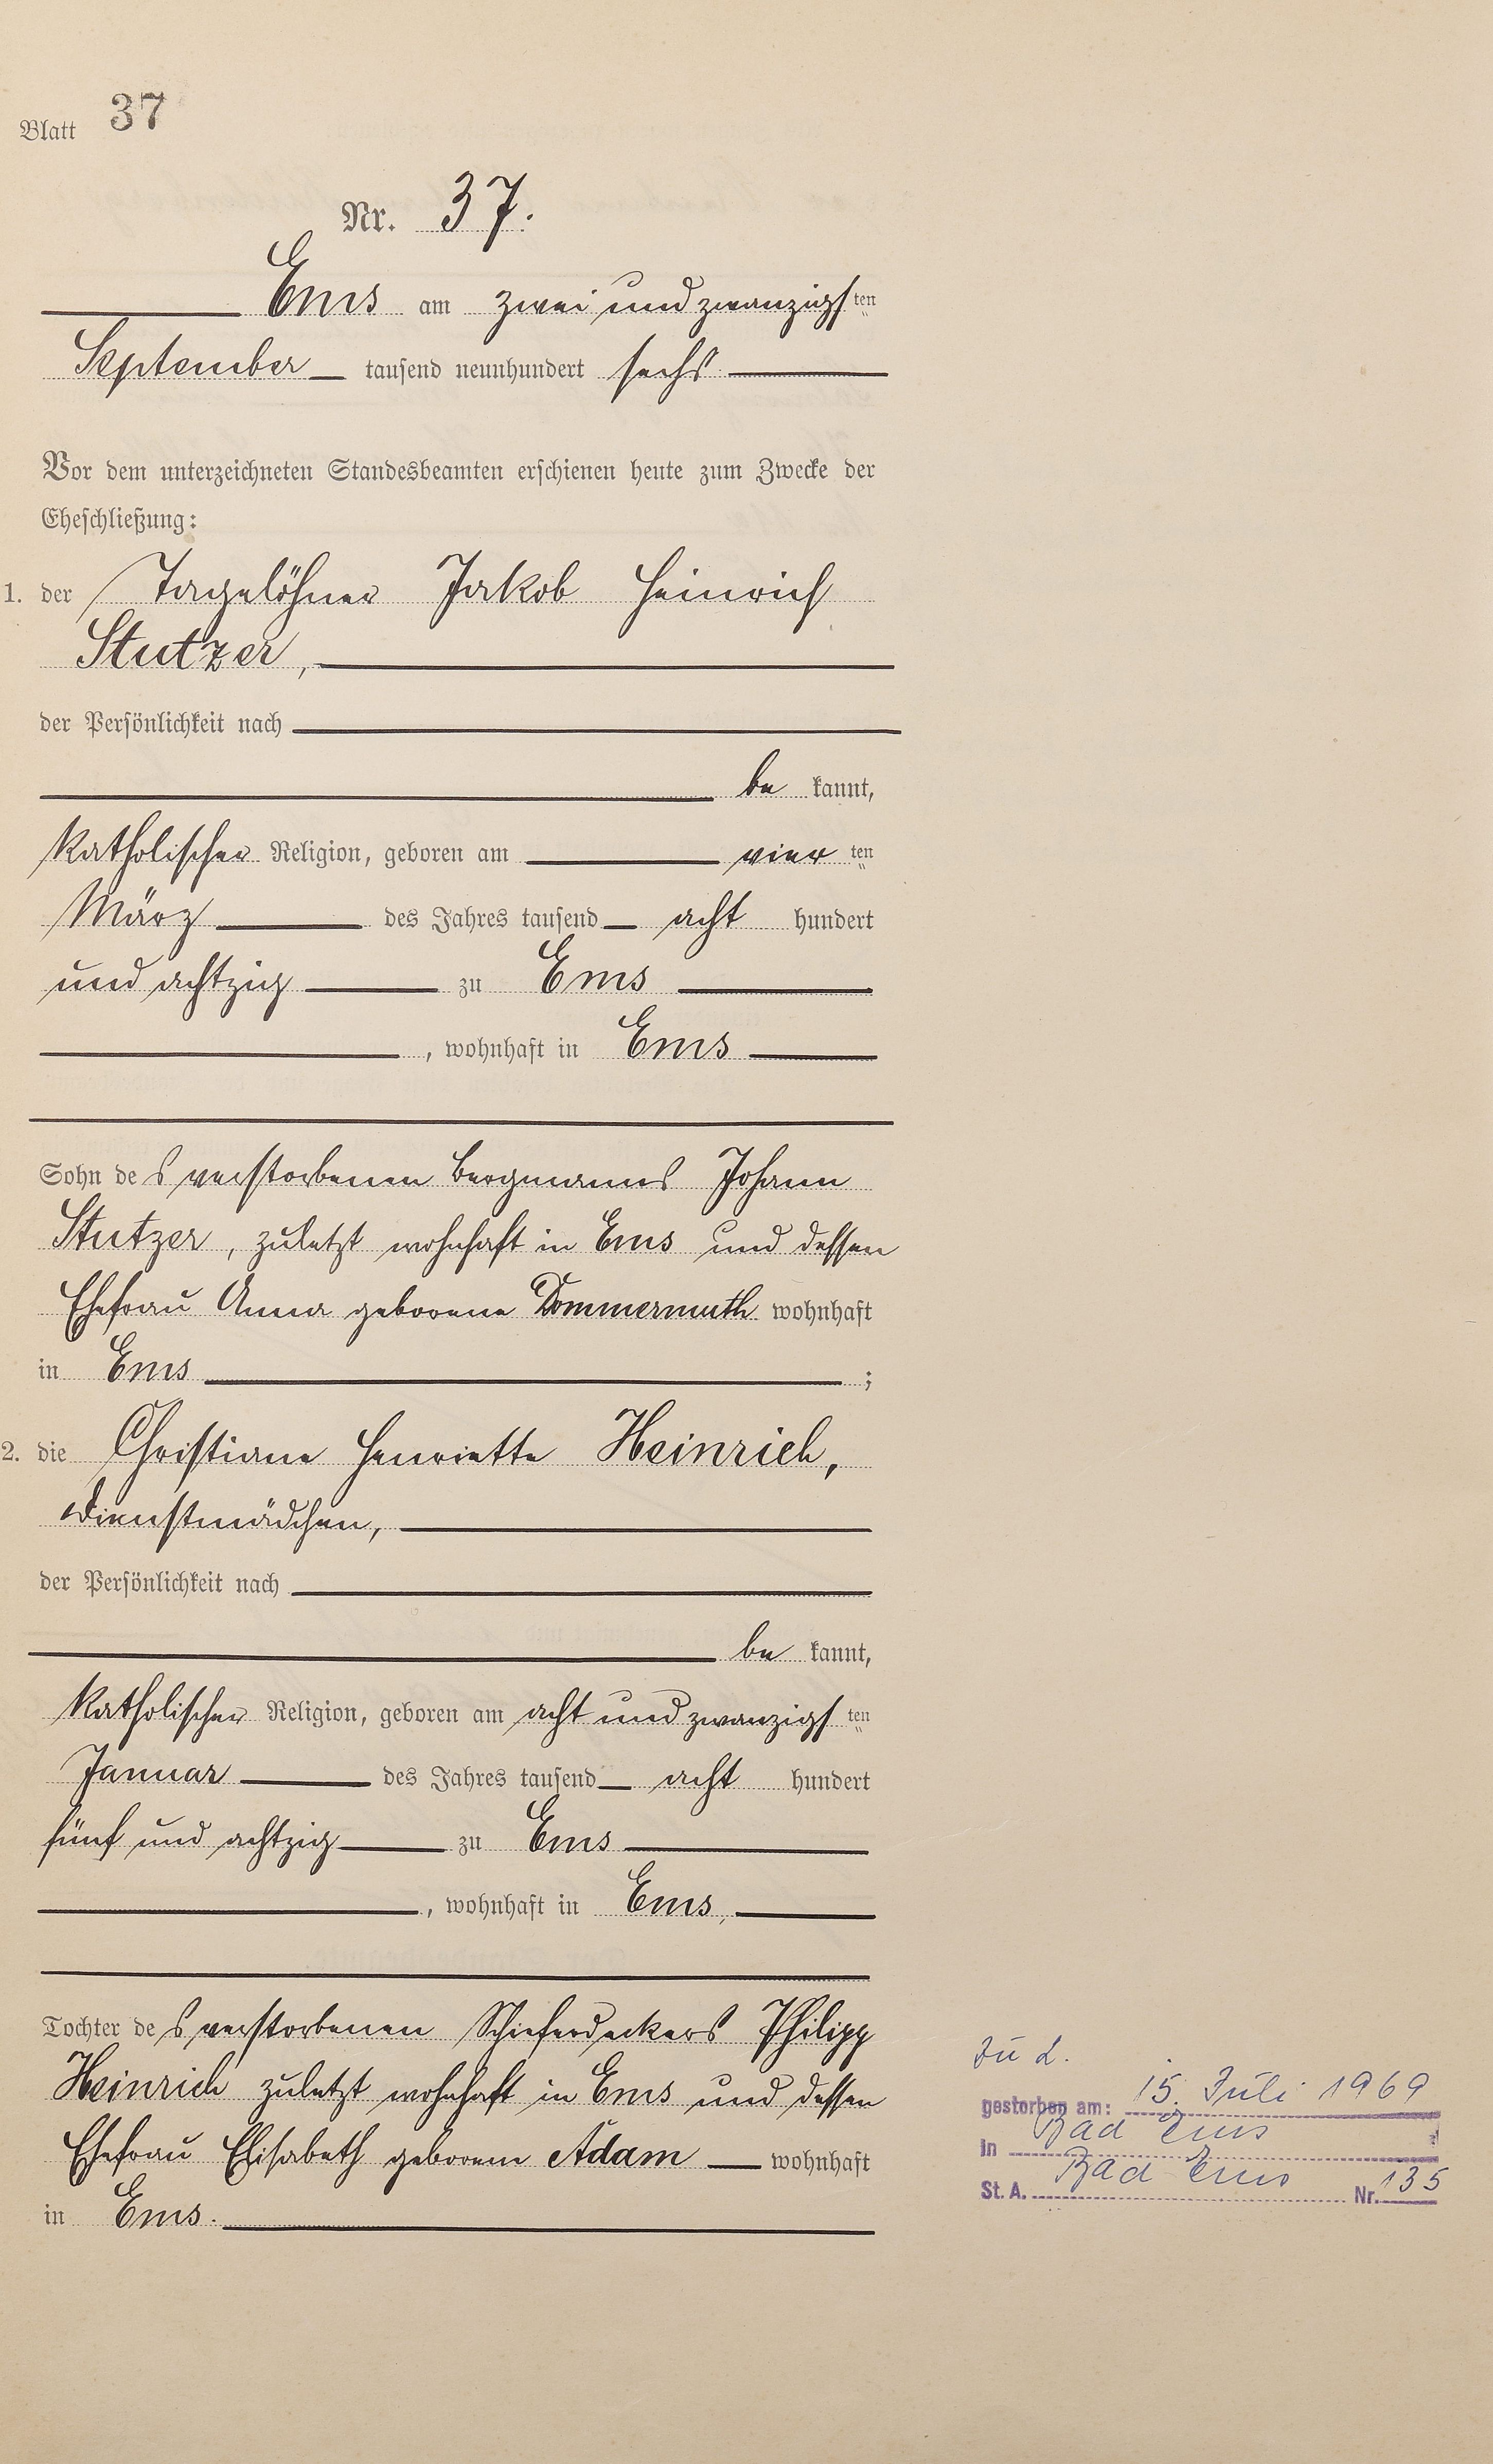 Blatt 37
Nr. 37.
Ems am zwei und zwanzigsten
September tausend neunhundert sechs
Vor dem unterzeichneten Standesbeamten erschienen heute zum Zwecke der
Eheschließung:
1. der Tagelöhner Jakob Heinrich
Stutzer,
der Persönlichkeit nach
be kannt,
katholischer Religion, geboren am vier ten
März des Jahres tausend acht hundert
und achtzig zu Ems
, wohnhaft in Ems
Sohn des verstorbenen Bergmanns Johann
Stutzer, zuletzt wohnhaft in Ems und dessen
Ehefrau Anna geborene Dommermuth wohnhaft
in Ems ;
2. die Christiane Henriette Heinrich,
Dienstmädchen,
der Persönlichkeit nach
be kannt,
katholischer Religion, geboren am acht und zwanzigsten
Januar des Jahres tausend acht hundert
fünf und achtzig zu Ems
, wohnhaft in Ems,
Tochter des verstorbenen Schieferdeckers Philipp
Heinrich zuletzt wohnhaft in Ems und dessen
Ehefrau Elisabeth geborene Adam wohnhaft
in Ems.
Zu 2.
gestorben am: 15. Juli 1969
in Bad Ems
St. A. Bad Ems Nr. 135